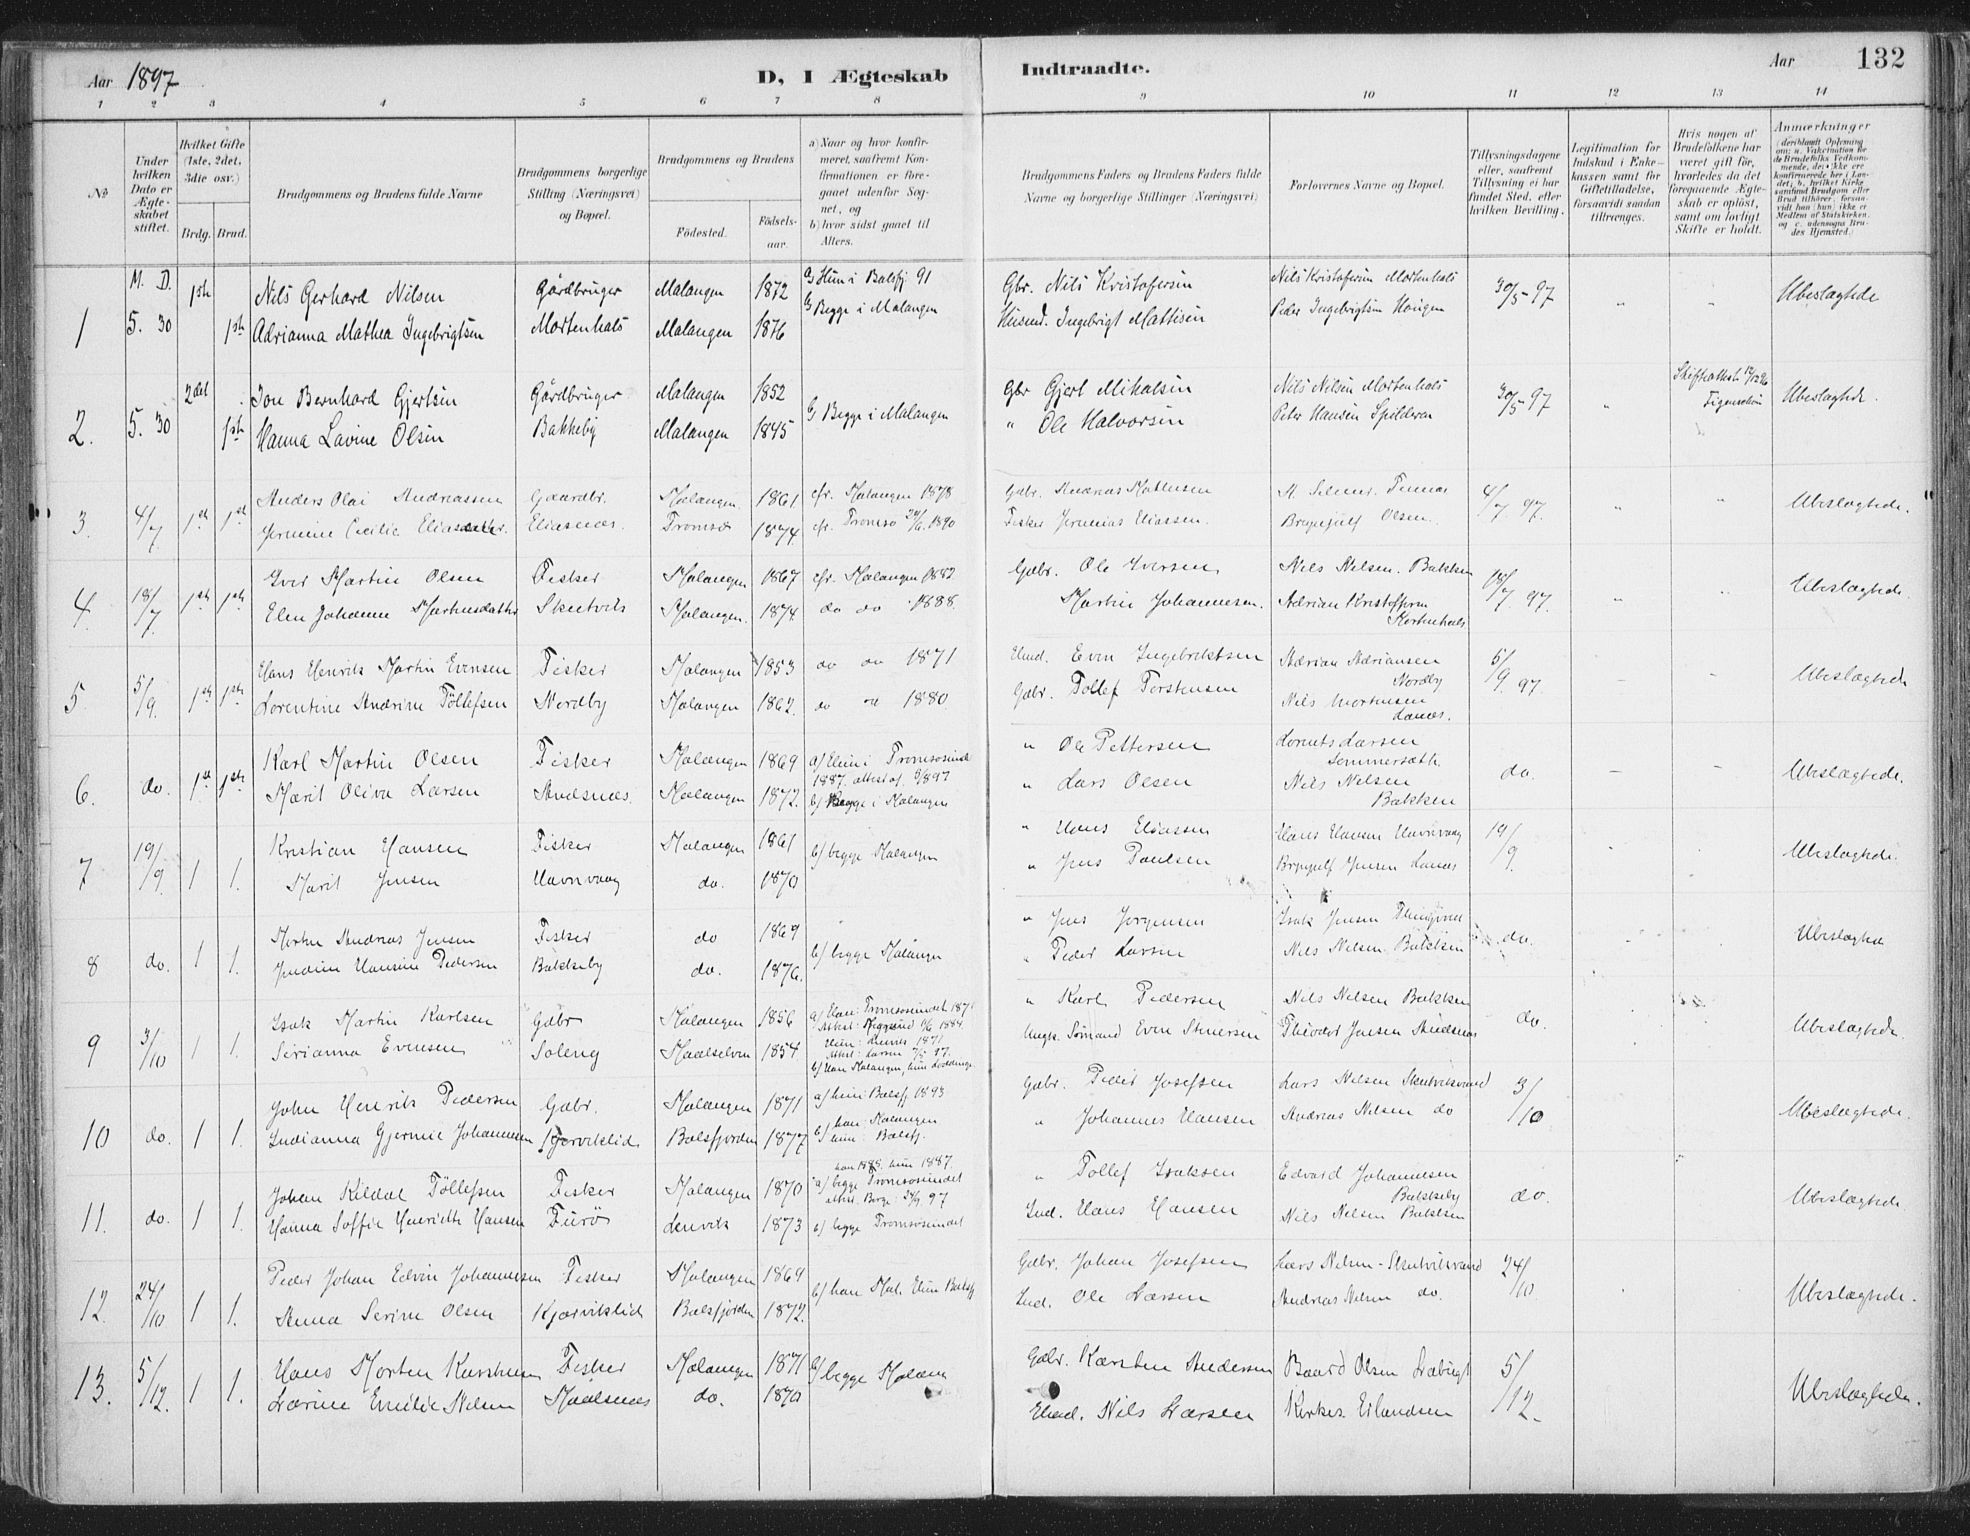 Aar 1897 D, I Ægteskab Indtraadte. Aar 132
1 2 3 4 5 6 7 8 9 10 11 12 13 14
No
Under hvilken Dato er Ægteskabet stiftet.
Hvilket Gifte (1ste, 2det, 3die osv.)
Brdg. Brud.
Brudgommens og Brudens fulde Navne
Brudgommens borgerlige Stilling (Næringsvei) og Bopæl.
Brudgommens og Brudens
Födested. Födsels-aar.
a) Naar og hvor konfirmeret, saafremt Konfirmationen er foregaaet udenfor Sognet, og
b) hvor sidst gaaet til Alters.
Brudgommens Faders og Brudens Faders fulde Navne og borgerlige Stillinger (Næringsvei)
Forlovernes Navne og Bopæl.
Tillysningsdagene eller, saafremt Tillysning ei har fundet Sted, efter hvilken Bevilling.
Legitimation for Indskud i Enkekassen samt for Giftetilladelse, forsaavidt saadan tiltrænges.
Hvis nogen af Brudefolkene har været gift för, hvorledes da det foregaaende Ægteskab er oplöst, samt om lovligt Skifte er holdt.
Anmærkninger
M. D.
1 5. 30 1ste Nils Gerhard Nilsen Gårdbruger Malangen 1872 a) Hun i Balsfj. 91 Gbr. Nils Kristofersen Nils Kristofersen Mortenhals 30/5-97 " " Ubeslagtede
1ste Adrianna Mathea Ingebrigtsen Mortenhals Malangen 1876 b) Begge i Malangen Husmd. Ingebrigt Mattisen Peder Ingebrigtsen Haugen
2. 5. 30 2det Jon Bernhard Gjertsen Gårdbruger Malangen 1852 b) Begge i Malangen Gbr Gjert Mikalsen Nils Nilsen Mortenhals 30/5-97 " Ubeslagtede.
1ste Hanna Lavine Olsen Bakkeby Malangen 1845 " Ole Halvorsen Peter Hansen Spilderen
3. 4/7 1st 1st Anders Olai Andreassen Gaardbr. Malangen 1861 cfr. Malangen 1878 Gabr. Andreas Mathisen 4/7 97. " Ubeslægtede.
Jermine Cecilie Eliasdatter. Eliasnæs. Tromsø 1874. cfr. Tromsø 29/6. 1890 Fisker Jermias Eliassen. Brynjulf Olsen.
4. 18/7 1ste 1ste Iver Martin Olsen Fisker Malangen 1867 cfr. Malangen 1882 Gabr. Ole Iversen Nils Nilsen. Bakken 18/7 97. " " Ubeslægtede.
Elen Johanne Martinsdatter Skutvik Malangen. 1874 do do 1888. Martin Johannesen. Adrian Kristoffersen
5 5/9. 1ste 1ste Hans Henrik Martin Evensen Fisker Malangen 1853 do do 1871 Even Ingebriktsen Adrian Adriansen Nordby 5/9. 97 - - Ubeslægtede
Lorentine Andrine Töllefsen Nordby Malangen 1862. do do 1880. Gabr. Tollef Torstensen Nils Mortensen Lanæs.
6. do. 1st 1ste Karl Martin Olsen Fisker Malangen 1869 a) Hun i Tromsøsundet " Ole Pettersen Lorents Larsen Sommersæth. do. - - Ubeslægtede.
Marit Oliva Larsen Andsnæs. Malangen 1872. 1887. attest af 9/897 b) Begge i Malangen " Lars Olsen Nils Nilsen Bakken
7 19/9. 1 1. Kristian Hansen Fisker Malangen 1861 b) begge Malangen " Hans Eliassen Hans Hansen Havnvaag 19/9. " Ubeslægtede.
Marit Jensen Havnvaag do. 1870 " Jens Paulsen Brynjulf Jensen Lanæs
8 do. 1 1. Morten Andreas Jensen Fisker do 1869 b) begge Malangen " Jens Jorgensen Isak Jensen do. Ubeslægtede
Jendine Hansine Pedersen Bakkeby do. 1876. " Peder Larsen Nils Nilsen Bakken
9 3/10 1 1. Isak Martin Karlsen Gabr Malangen 1856 a) Han: Tromsøsundet 187 " Karl Pedersen Nils Nilsen Bakken do. Ubeslægtede.
Serianna Evensen Soleng Maalselven 1854. Hun: Lenvik 1871 b) Han Malangen, hun Even Theodor Jensen Andsnæs
10 do. 1 1. John Henrik Pedersen Gabr. Malangen 1871 a) hun: Balsfj 1893 Gabr. Peder Josefsen Lars Nilsen Skutvikvand 3/10 Ubeslægtede.
Indianna Gjermie Johannesen Kjørviklid Balsfjorden 1877 b) han: Malangen hun: Balsfj. " Johannes Hansen Andreas Nilsen do
11. do. 1 1. Johan Kildal Töllefsen Fisker Malangen 1870 han 1885. hun 1887. a) begge Tromsøsundet " Tollef Isaksen Edvard Johannesen Bakkeby do. Ubeslægtede.
Hanna Soffie Henriette Hansen Furö Lenvik 1873 b) begge Tromsøsundet Ind. Hans Hansen Nils Nilsen Bakken
12. 24/10 1 1. Peder Johan Edvin Johannesen Fisker Malangen 1869 b) han Mal. Hun Balsfj Gabr. Johan Josefsen Lars Nilsen - Skutvikvand 24/10 Ubeslægtede.
Anna Serine Olsen Kjørviklid Balsfjorden 1872. Ind. Ole Larsen Andreas Nilsen do.
13. 5/12. 1 1. Hans Morten Karstensen Fisker Malangen 1871 b) begge Malang Gabr. Karsten Andersen Baard Olsen 5/12. Ubeslægtede.
Lavine Emilie Nilsen Maalsnes do. 1870 Nils Larsen Kerkes. Erlandsen